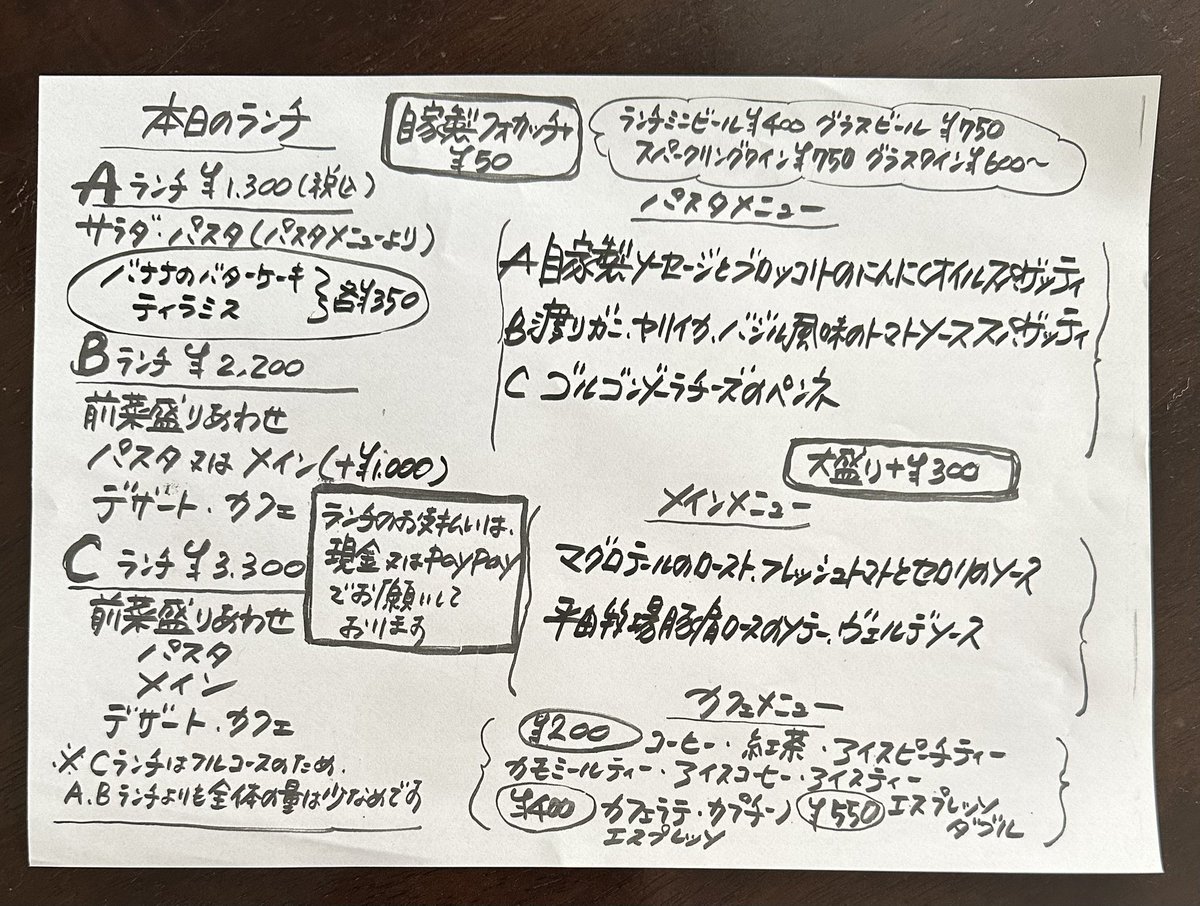 本日のランチ
自家製フォカッチャ
¥50
ランチミニビール¥400 グラスビール ¥750
スパークリングワイン¥750 グラスワイン¥600〜
Aランチ ¥1,300(税込)
サラダ・パスタ(パスタメニューより)
バナナのバターケーキ
ティラミス
各¥350
Bランチ ¥2,200
前菜盛りあわせ
パスタ又はメイン(+¥1,000)
デザート・カフェ
Cランチ ¥3,300
前菜盛りあわせ
パスタ
メイン
デザート・カフェ
※Cランチはフルコースのため、
A.Bランチよりも全体の量は少なめです
ランチのお支払いは、
現金又はPayPay
でお願いして
おります
パスタメニュー
A 自家製ソーセージとブロッコリーのにんにくオイルスパゲッティ
B 渡りガニ、ヤリイカ、バジル風味のトマトソーススパゲッティ
C ゴルゴンゾーラチーズのペンネ
大盛り+¥300
メインメニュー
マグロテールのロースト、フレッシュトマトとセロリのソース
平田牧場豚肩ロースのソテー、ヴェルデソース
カフェメニュー
¥200 コーヒー・紅茶・アイスピーチティー
カモミールティー・アイスコーヒー・アイスティー
¥400 カフェラテ・カプチーノ ¥550 エスプレッソ
エスプレッソ ダブル